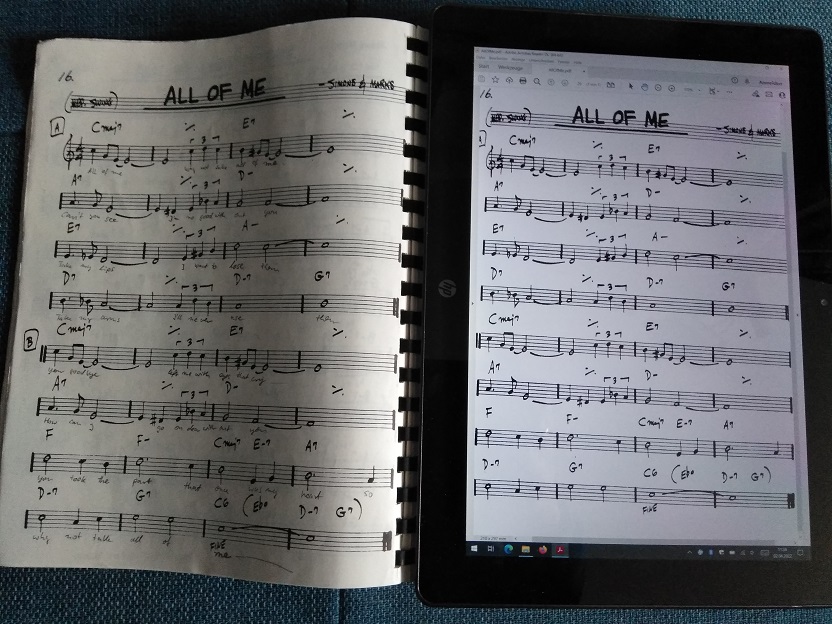 16.
ALL OF ME
(MED. SWING)
- SIMONS & MARKS
A
Cmaj7 ٪ E7 ٪
3
All of me why not take all of me
A7 ٪ D- ٪
3
Can't you see I'm no good with out you
E7 ٪ A- ٪
3
Take my lips I want to lose them
D7 ٪ D-7 G7
3
Take my arms I'll never use them
B
Cmaj7 ٪ E7 ٪
3
your goodbye left me with eyes that cry
A7 ٪ D- ٪
3
How can I go on dear with out you
F F- Cmaj7 E-7 A7
you took the part that once was my heart so
D-7 G7 C6 (Ebo D-7 G7)
why not take all of me
FINE
16.
ALL OF ME
(MED. SWING)
- SIMONS & MARKS
Cmaj7 ٪ E7 ٪
3
A7 ٪ D- ٪
3
E7 ٪ A- ٪
3
D7 ٪ D-7 G7
3
Cmaj7 ٪ E7 ٪
3
A7 ٪ D- ٪
3
F F- Cmaj7 E-7 A7
D-7 G7 C6 (Ebo D-7 G7)
FINE
hp